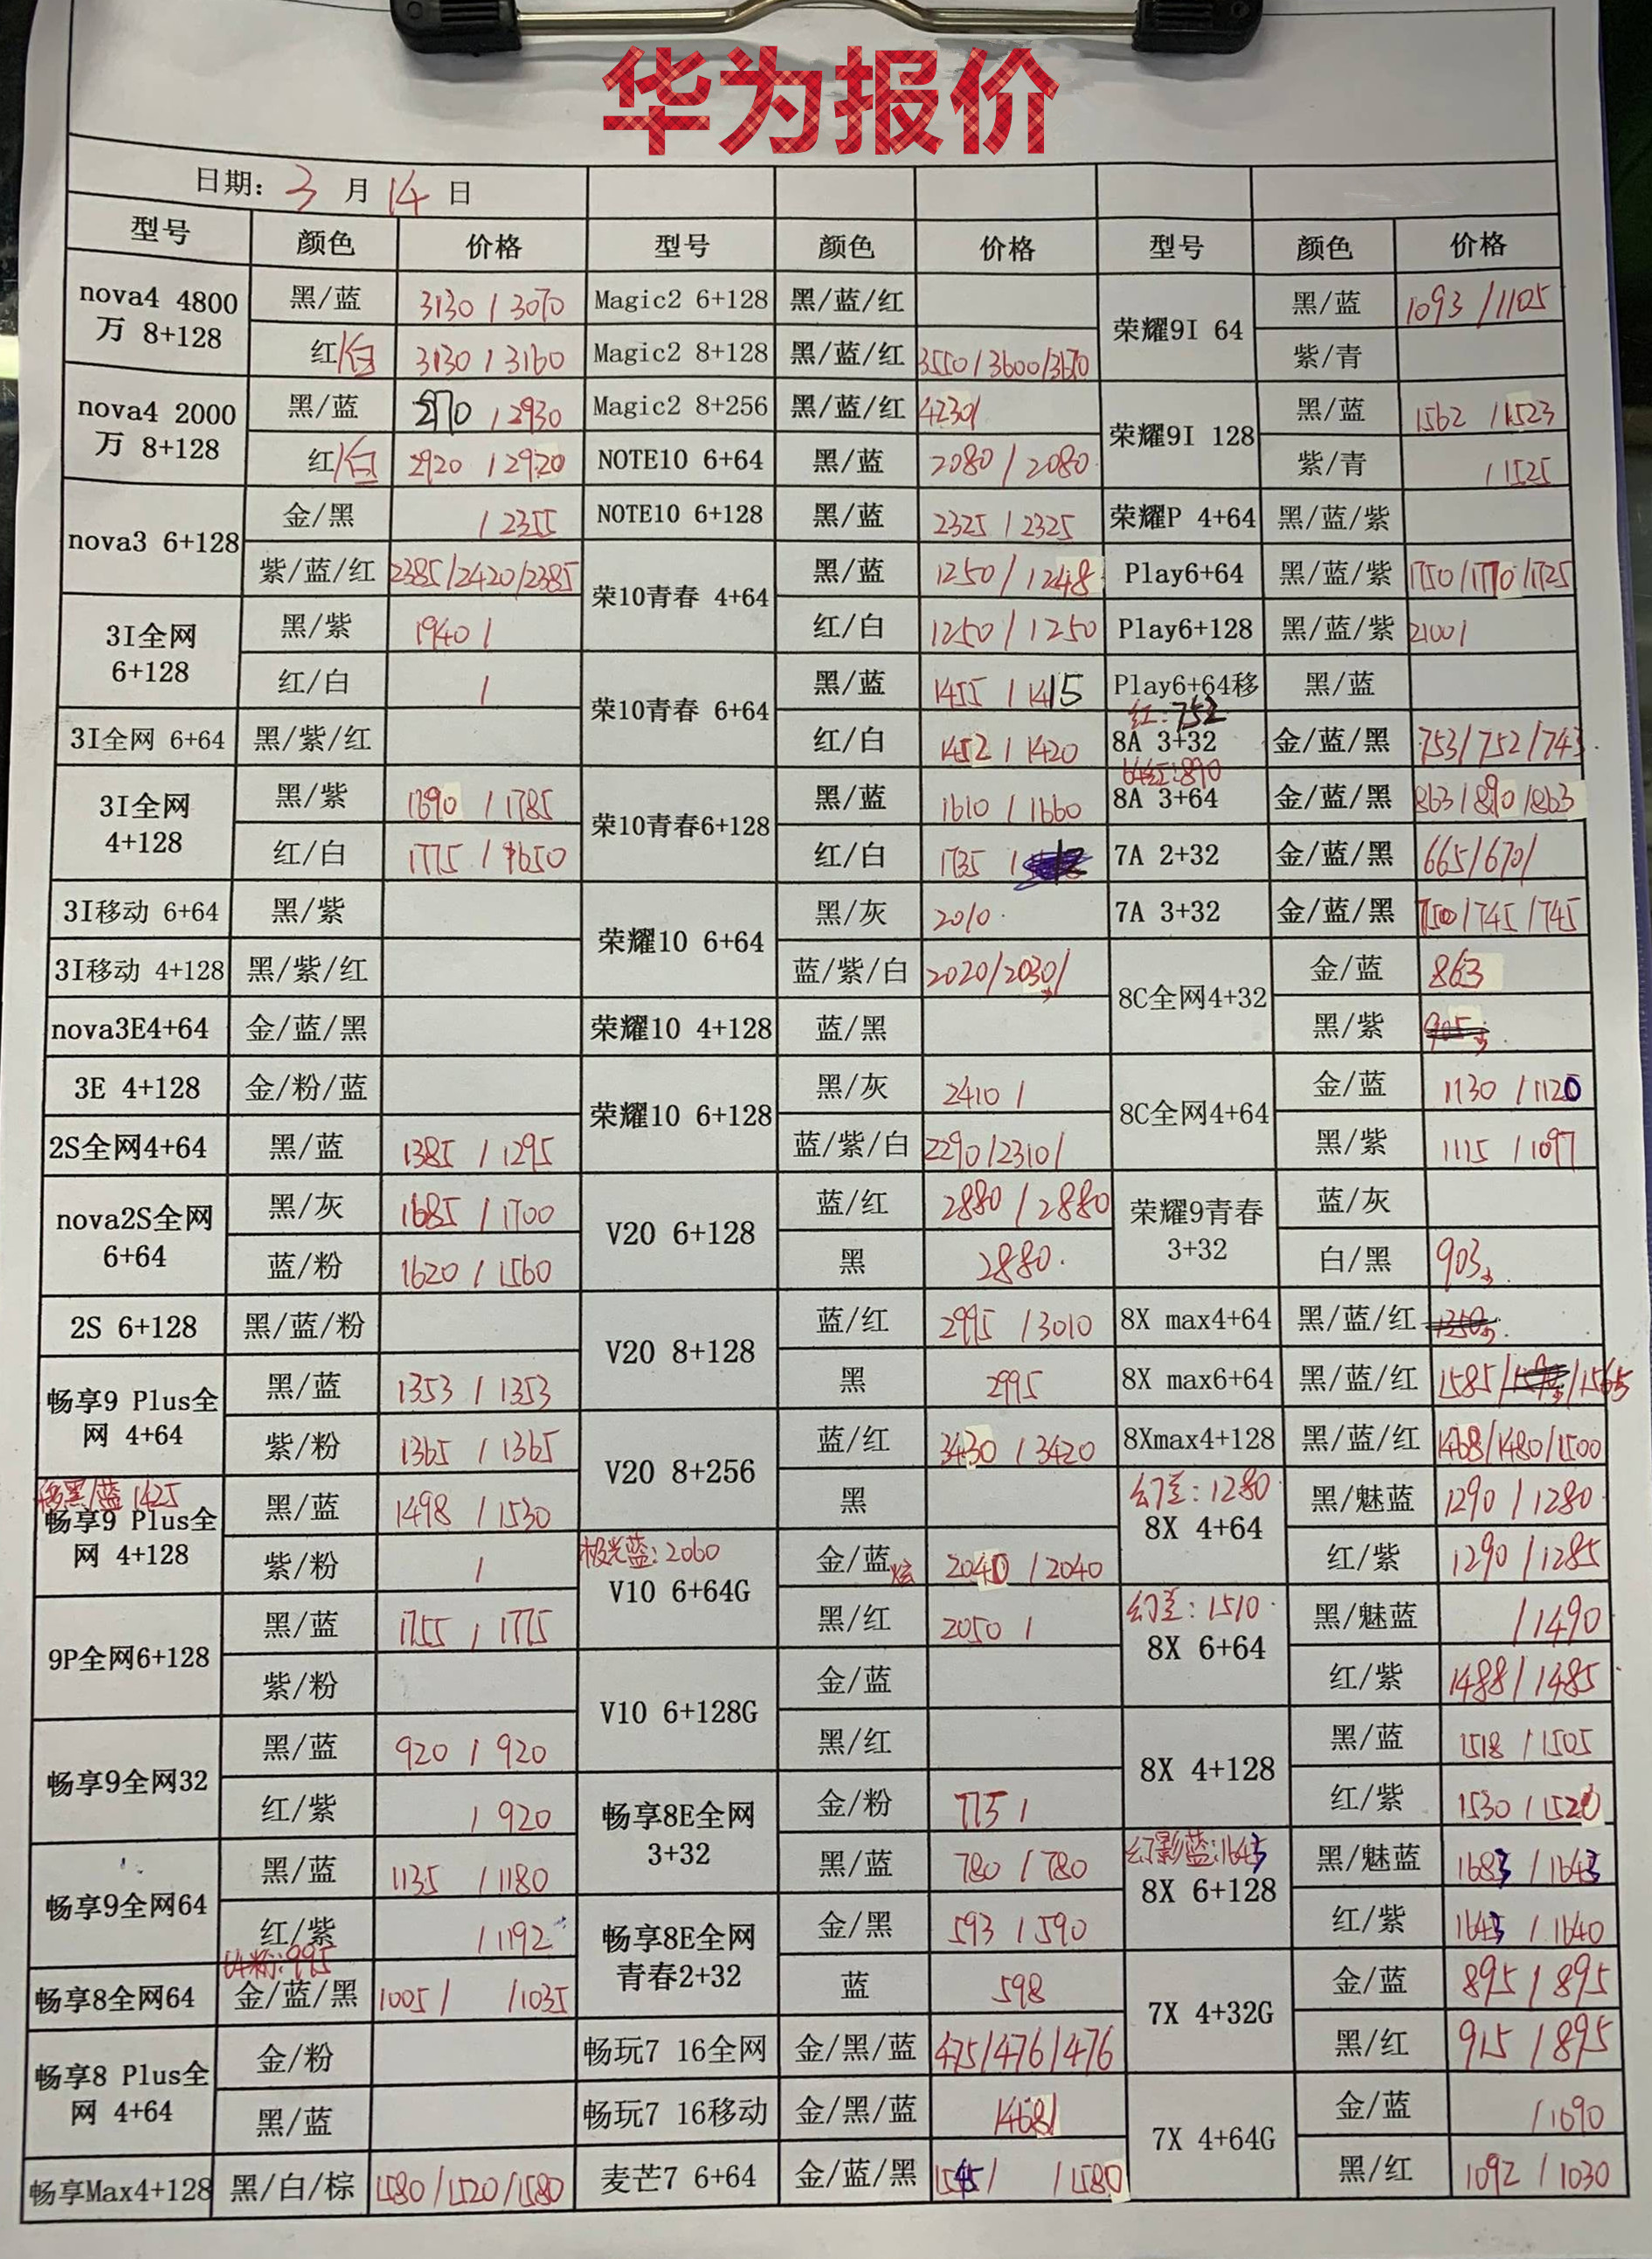 华为报价
日期: 3 月 14 日
型号 颜色 价格 型号 颜色 价格 型号 颜色 价格
nova4 4800万 8+128 黑/蓝 3130 / 3070
红/白 3130 / 3160
nova4 2000万 8+128 黑/蓝 / 2930
红/白 2920 / 2920
nova3 6+128 金/黑 / 2355
紫/蓝/红 2385/2420/2385
3I全网 6+128 黑/紫 1940 /
红/白 /
3I全网 6+64 黑/紫/红
3I全网 4+128 黑/紫 1690 / 1785
红/白 1775 / 1650
3I移动 6+64 黑/紫
3I移动 4+128 黑/紫/红
nova3E4+64 金/蓝/黑
3E 4+128 金/粉/蓝
2S全网4+64 黑/蓝 1385 / 1295
nova2S全网 6+64 黑/灰 1685 / 1700
蓝/粉 1620 / 1560
2S 6+128 黑/蓝/粉
畅享9 Plus全网 4+64 黑/蓝 1353 / 1353
紫/粉 1365 / 1365
移黑/蓝 1425
畅享9 Plus全网 4+128 黑/蓝 1498 / 1530
紫/粉 /
9P全网6+128 黑/蓝 1755 / 1775
紫/粉
畅享9全网32 黑/蓝 920 / 920
红/紫 / 920
畅享9全网64 黑/蓝 1135 / 1180
红/紫 / 1192
64粉:995
畅享8全网64 金/蓝/黑 1005 / /1035
畅享8 Plus全网 4+64 金/粉
黑/蓝
畅享Max4+128 黑/白/棕 1580/1520/1580
Magic2 6+128 黑/蓝/红
Magic2 8+128 黑/蓝/红 3550/3600/3670
Magic2 8+256 黑/蓝/红 4230/
NOTE10 6+64 黑/蓝 2080 / 2080
NOTE10 6+128 黑/蓝 2325 / 2325
荣10青春 4+64 黑/蓝 1250 / 1248
红/白 1250 / 1250
荣10青春 6+64 黑/蓝 1455 / 1415
红/白 1452 / 1420
荣10青春6+128 黑/蓝 1610 / 1660
红/白 1735 /
荣耀10 6+64 黑/灰 2010
蓝/紫/白 2020/2030/
荣耀10 4+128 蓝/黑
荣耀10 6+128 黑/灰 2410 /
蓝/紫/白 2290/2310/
V20 6+128 蓝/红 2880 / 2880
黑 2880
V20 8+128 蓝/红 2995 / 3010
黑 2995
V20 8+256 蓝/红 3430 / 3420
黑
极光蓝: 2060
V10 6+64G 金/蓝炫 2040 / 2040
黑/红 2050 /
V10 6+128G 金/蓝
黑/红
畅享8E全网 3+32 金/粉 775 /
黑/蓝 780 / 780
畅享8E全网青春2+32 金/黑 593 / 590
蓝 598
畅玩7 16全网 金/黑/蓝 475/476/476
畅玩7 16移动 金/黑/蓝 1468/
麦芒7 6+64 金/蓝/黑 1545/ /1580
荣耀9I 64 黑/蓝 1093 / 1105
紫/青
荣耀9I 128 黑/蓝 1562 / 1523
紫/青 / 1525
荣耀P 4+64 黑/蓝/紫
Play6+64 黑/蓝/紫 1750/1770/1725
Play6+128 黑/蓝/紫 2100/
Play6+64移 黑/蓝
红: 752
8A 3+32 金/蓝/黑 753/752/743
64红:890
8A 3+64 金/蓝/黑 863/890/863
7A 2+32 金/蓝/黑 665/670/
7A 3+32 金/蓝/黑 750/745/745
8C全网4+32 金/蓝 863
黑/紫 905
8C全网4+64 金/蓝 1130 / 1120
黑/紫 1115 / 1097
荣耀9青春 3+32 蓝/灰
白/黑 903
8X max4+64 黑/蓝/红 1250
8X max6+64 黑/蓝/红 1585/ /1565
8Xmax4+128 黑/蓝/红 1468/1480/1500
幻兰: 1280
8X 4+64 黑/魅蓝 1290 / 1280
红/紫 1290 / 1285
幻兰: 1510
8X 6+64 黑/魅蓝 / 1490
红/紫 1488 / 1485
8X 4+128 黑/蓝 1518 / 1505
红/紫 1530 / 1520
幻影蓝:1643
8X 6+128 黑/魅蓝 1683 / 1643
红/紫 1643 / 1640
7X 4+32G 金/蓝 895 / 895
黑/红 915 / 895
7X 4+64G 金/蓝 / 1090
黑/红 1092 / 1030